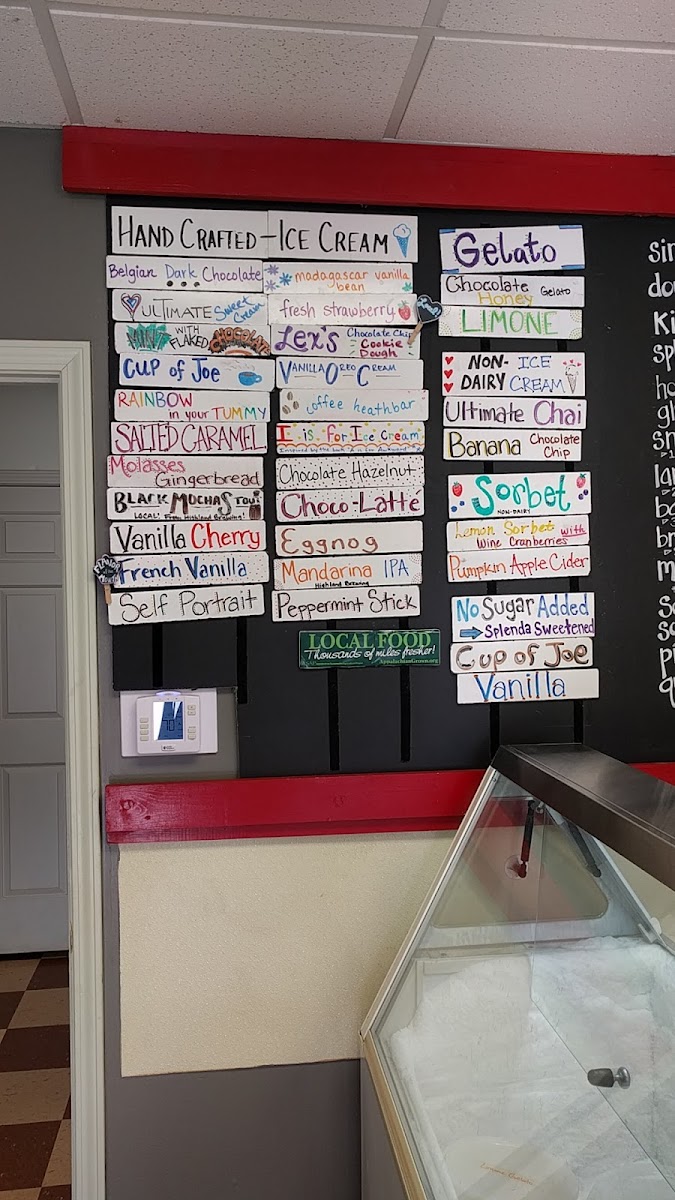 HAND CRAFTED - ICE CREAM
Belgian Dark Chocolate
ULTIMATE Sweet Cream
MINT WITH FLAKED CHOCOLATE
CUP of JOE
RAINBOW
in your TUMMY
SALTED CARAMEL
Molasses
Gingerbread
BLACK MOCHA STOUT
LOCAL! From Highland Brewing!
Vanilla Cherry
French Vanilla
Self Portrait
madagascar vanilla
bean
fresh strawberry
Lex's Chocolate Chip
Cookie
Dough
VANILLA OREO CREAM
coffee heathbar
I is for Ice Cream
Chocolate Hazelnut
Choco-Latté
Eggnog
Mandarina IPA
Highland Brewing
Peppermint Stick
LOCAL FOOD
Thousands of miles fresher!
AppalachianGrown.org
Gelato
Chocolate
Honey Gelato
LIMONE
NON- ICE
DAIRY CREAM
Ultimate Chai
Banana Chocolate
Chip
Sorbet
NON-DAIRY
Lemon Sorbet with
Wine Cranberries
Pumpkin Apple Cider
No Sugar Added
Splenda Sweetened
Cup of Joe
Vanilla